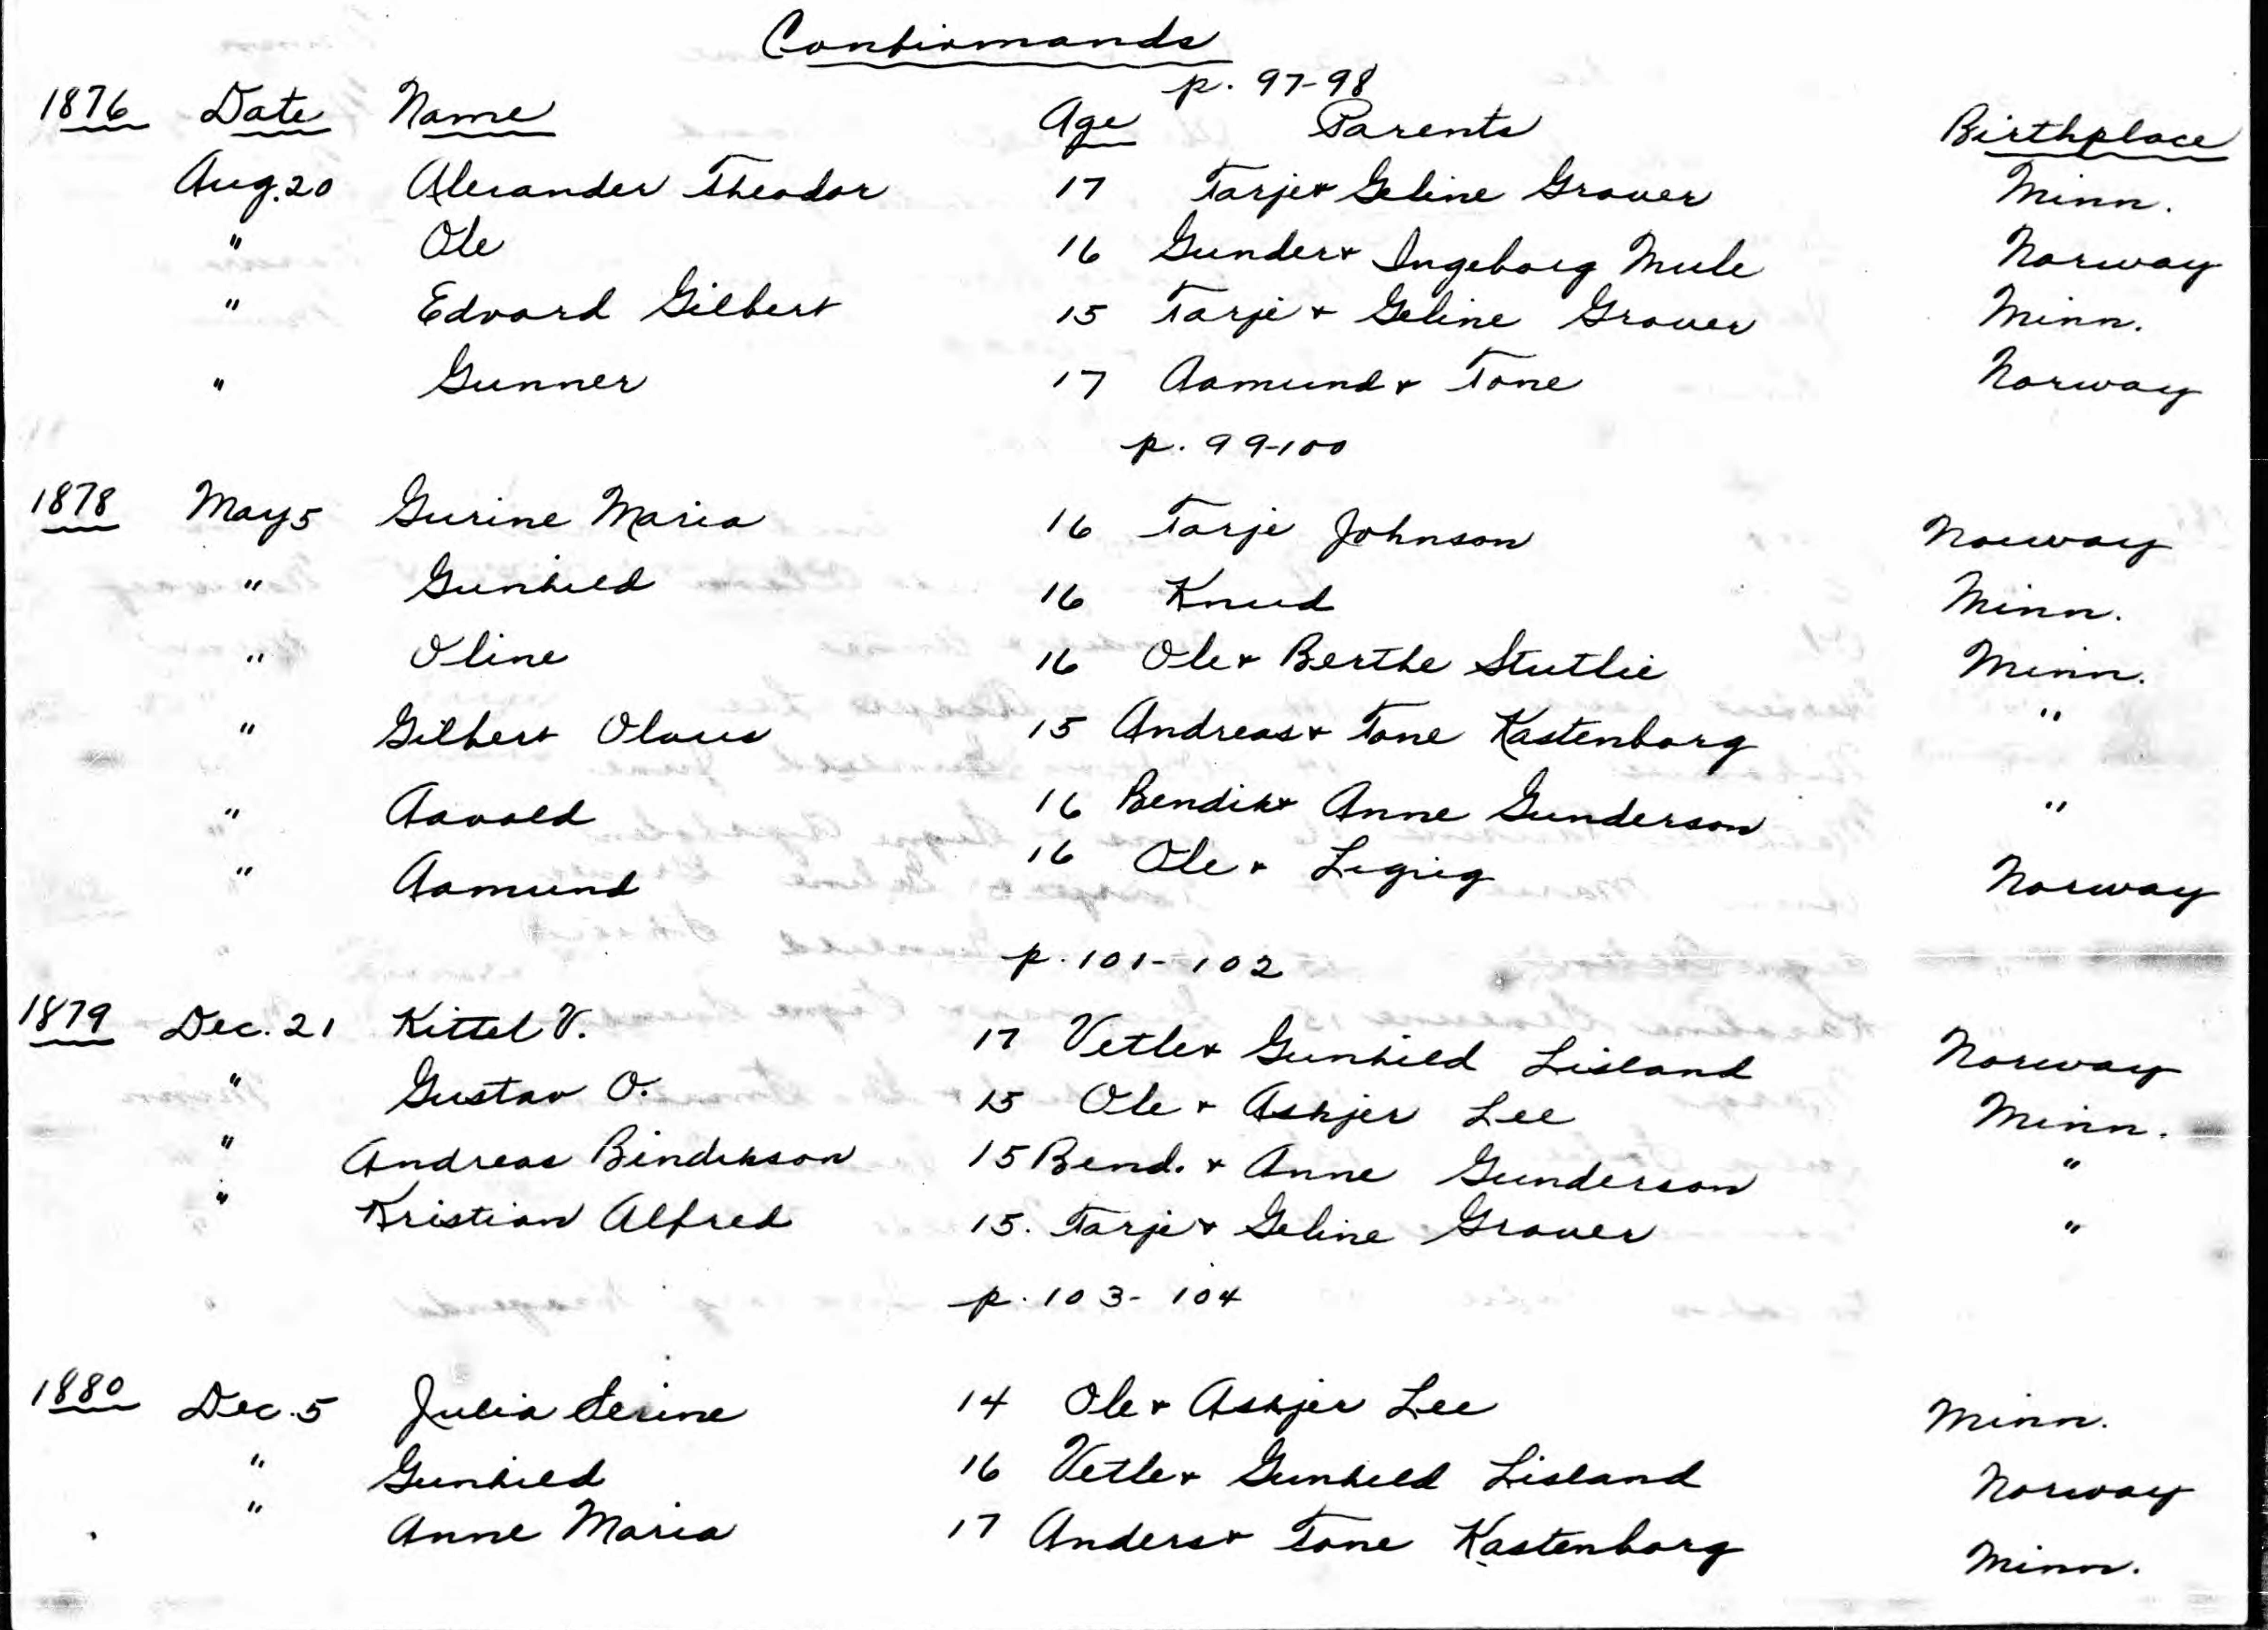 Confirmands
p. 97-98
1876 Date Name Age Parents Birthplace
Aug. 20 Alexander Theodor 17 Tarje & Geline Grover Minn.
" Ole 16 Gunder & Ingeborg Mule Norway
" Edvard Gilbert 15 Tarje & Geline Grover Minn.
" Gunner 17 Aamund & Tone Norway
p. 99-100
1878 May 5 Gurine Maria 16 Tarje Johnson Norway
" Gunhild 16 Knud Minn.
" Oline 16 Ole & Berthe Stutlie Minn.
" Gilbert Olaus 15 Andreas & Tone Kastenborg "
" Aavold 16 Bendik & Anne Gunderson "
" Aamund 16 Ole & Norway
p. 101-102
1879 Dec. 21 Kittel V. 17 Vetle & Gunhild Lisland Norway
" Gustav O. 15 Ole & Askjer Lee Minn.
" Andreas Bindikson 15 Bend. & Anne Gunderson "
" Kristian Alfred 15. Tarje & Geline Grover "
p. 103-104
1880 Dec. 5 Julia Serine 14 Ole & Askjer Lee Minn.
" Gunhild 16 Vetle & Gunhild Lisland Norway
" Anne Maria 17 Anders & Tone Kastenborg Minn.